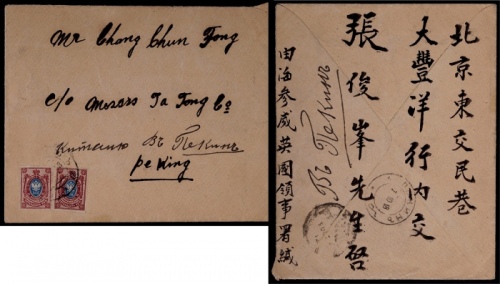 Mr Chong Chun Fong
c/o Messrs Ta Fong Co
Китаию Въ Пекинъ
Peking
北京東交民巷
大豐洋行內交
張俊峯先生啓
Въ Пекинъ
由海參威英國領事署緘